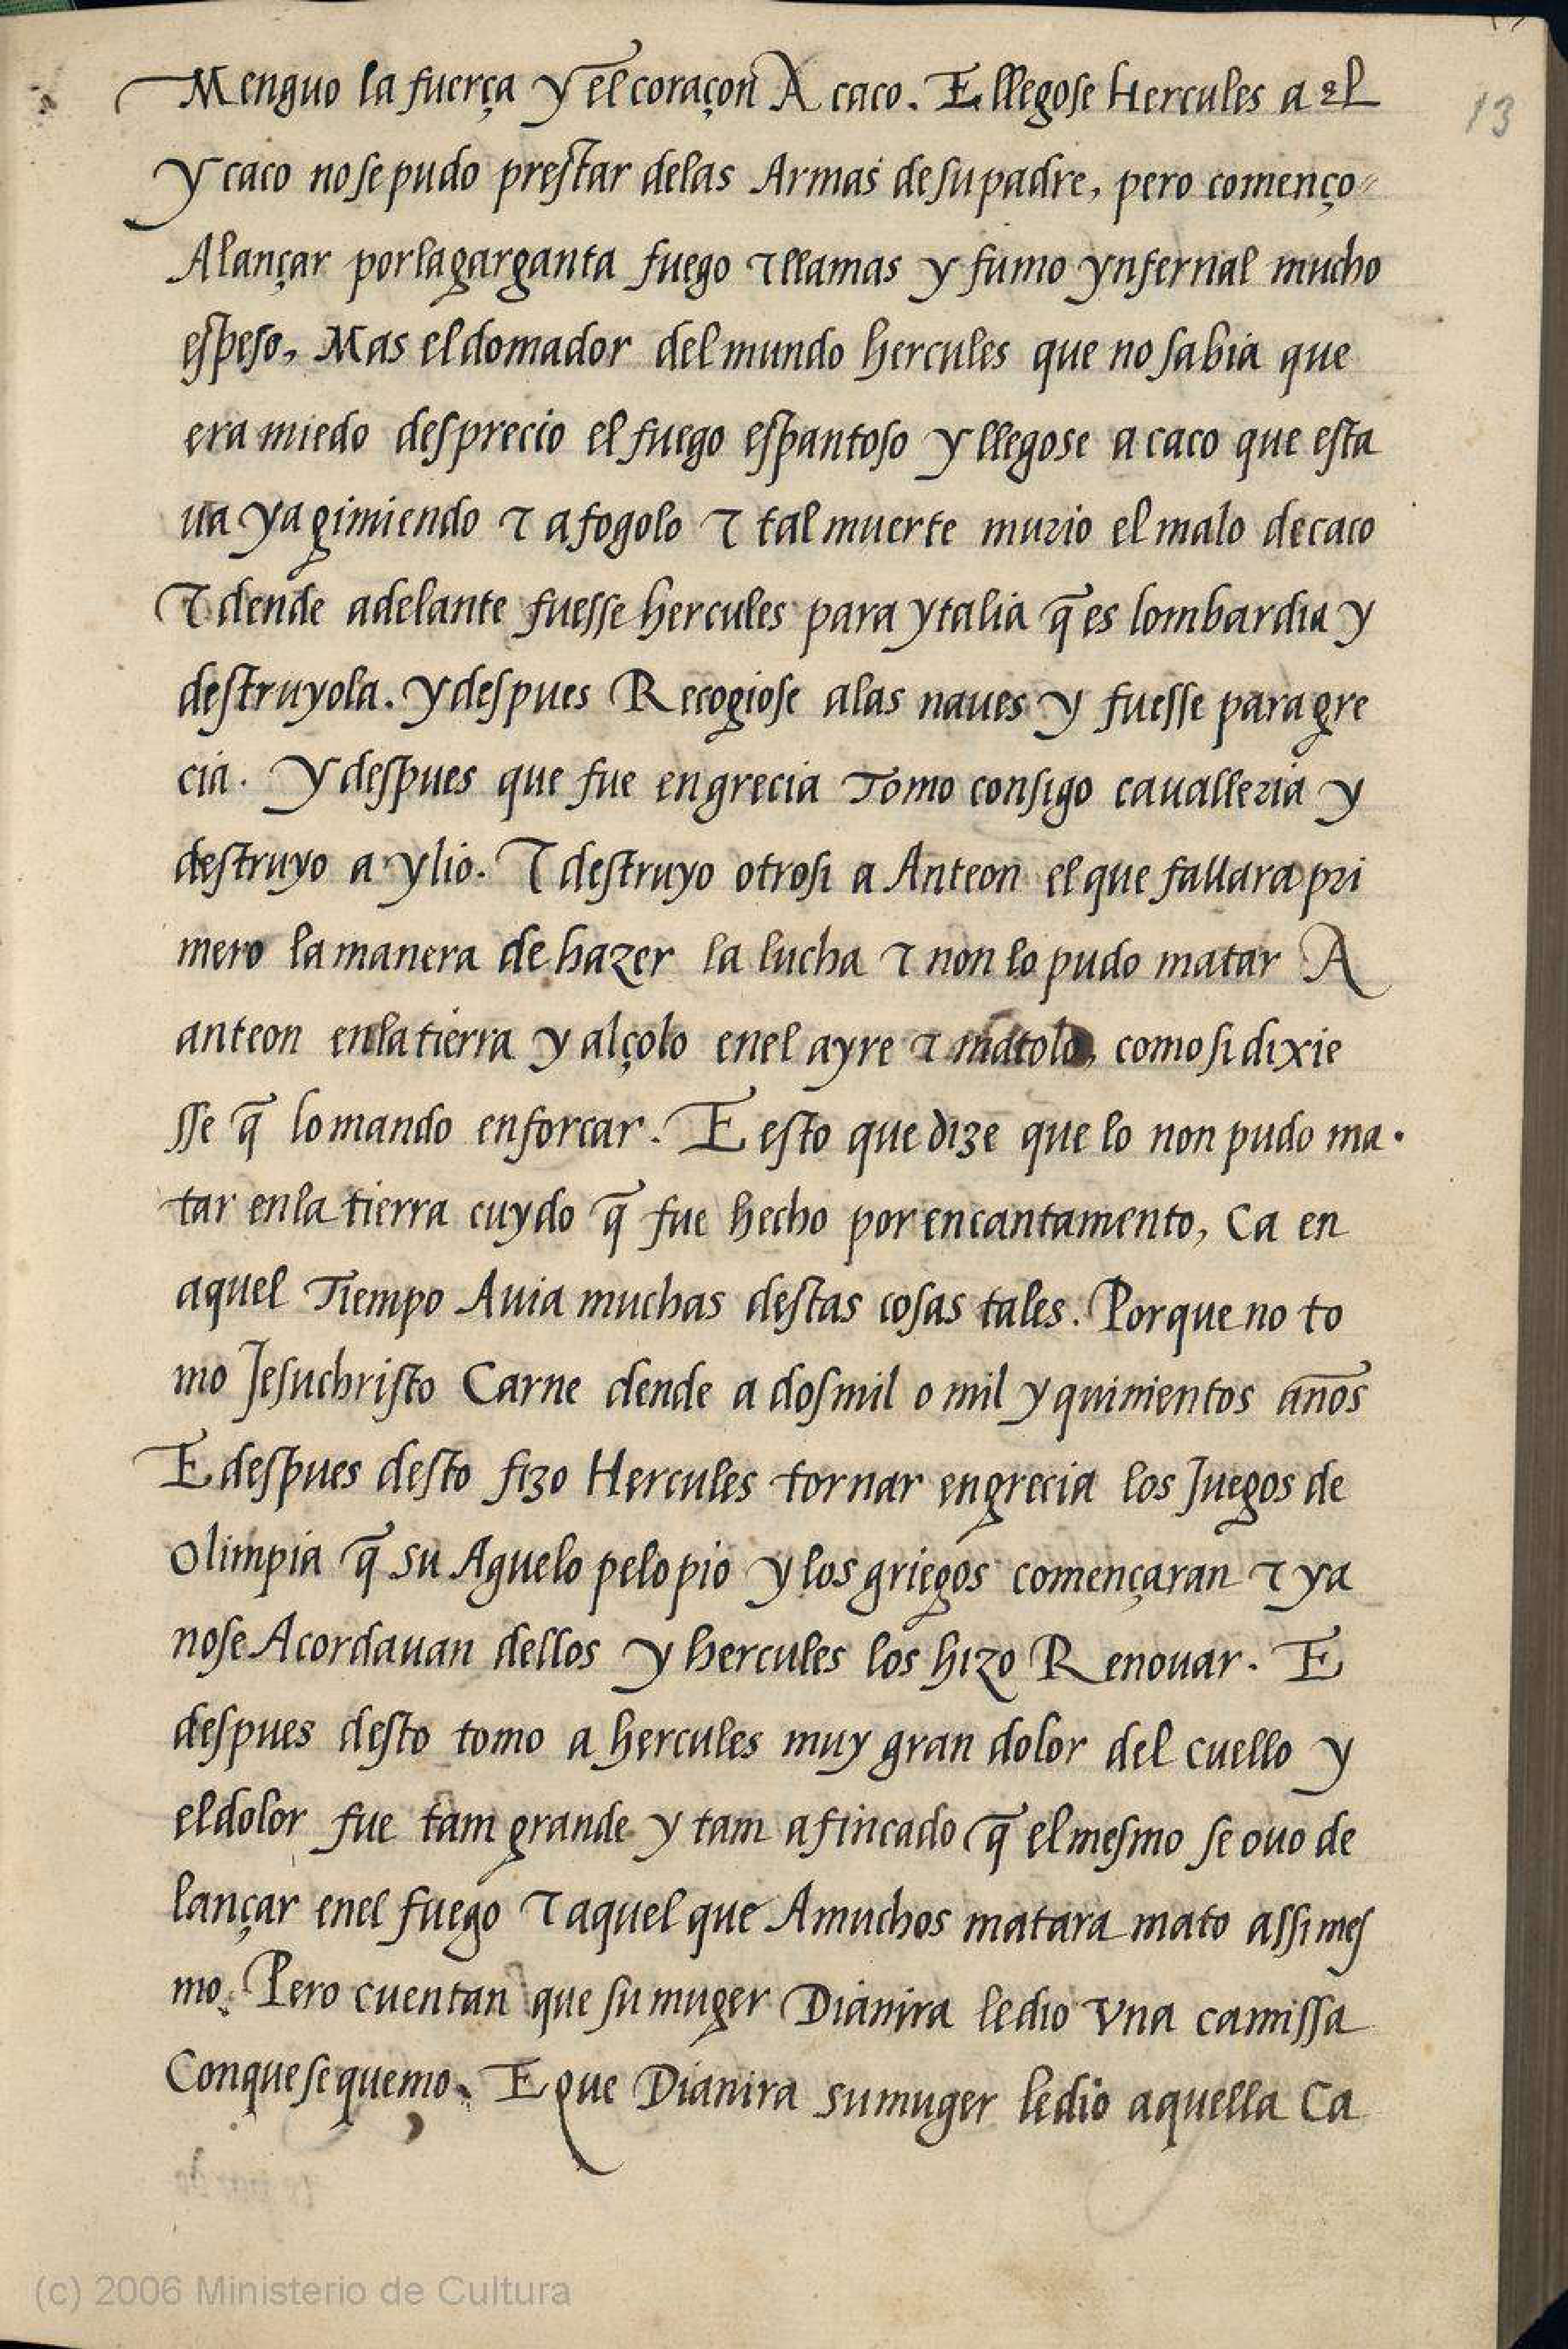 Menguo la fuerça y el coraçon A caco. E llegose Hercules a el
13
y caco no se pudo prestar de las Armas de su padre, pero començo
A lançar por la garganta fuego ⁊ llamas y fumo ynfernal mucho
espeso, Mas el domador del mundo hercules que no sabia que
era miedo desprecio el fuego espantoso y llegose a caco que esta
ua ya gimiendo ⁊ afogolo ⁊ tal muerte murio el malo de caco
⁊ dende adelante fuesse hercules para ytalia q̃ es lombardia y
destruyola. y despues Recogiose a las naues y fuesse para gre
cia. y despues que fue en grecia Tomo consigo caualleria y
destruyo a ylio. ⁊ destruyo otrosi a Anteon el que fallara pri
mero la manera de hazer la lucha ⁊ non lo pudo matar A
anteon en la tierra y alçolo en el ayre ⁊ matolo, como si dixie
sse q̃ lo mando enforcar. E esto que dize que lo non pudo ma
tar en la tierra cuydo q̃ fue hecho por encantamento, Ca en
aquel Tiempo Auia muchas destas cosas tales. Porque no to
mo Jesuchristo Carne dende a dos mil o mil y quinientos años
E despues desto fizo Hercules tornar en grecia los Juegos de
Olimpia q̃ su Aguelo pelopio y los griegos començaran ⁊ ya
no se Acordauan dellos y hercules los hizo Renouar. E
despues desto tomo a hercules muy gran dolor del cuello y
el dolor fue tam grande y tam afincado q̃ el mesmo se ouo de
lançar en el fuego ⁊ aquel que A muchos matara mato assi mes
mo. Pero cuentan que su muger Dianira le dio Vna camissa
Con que se quemo. E que Dianira su muger le dio aquella Ca
(c) 2006 Ministerio de Cultura